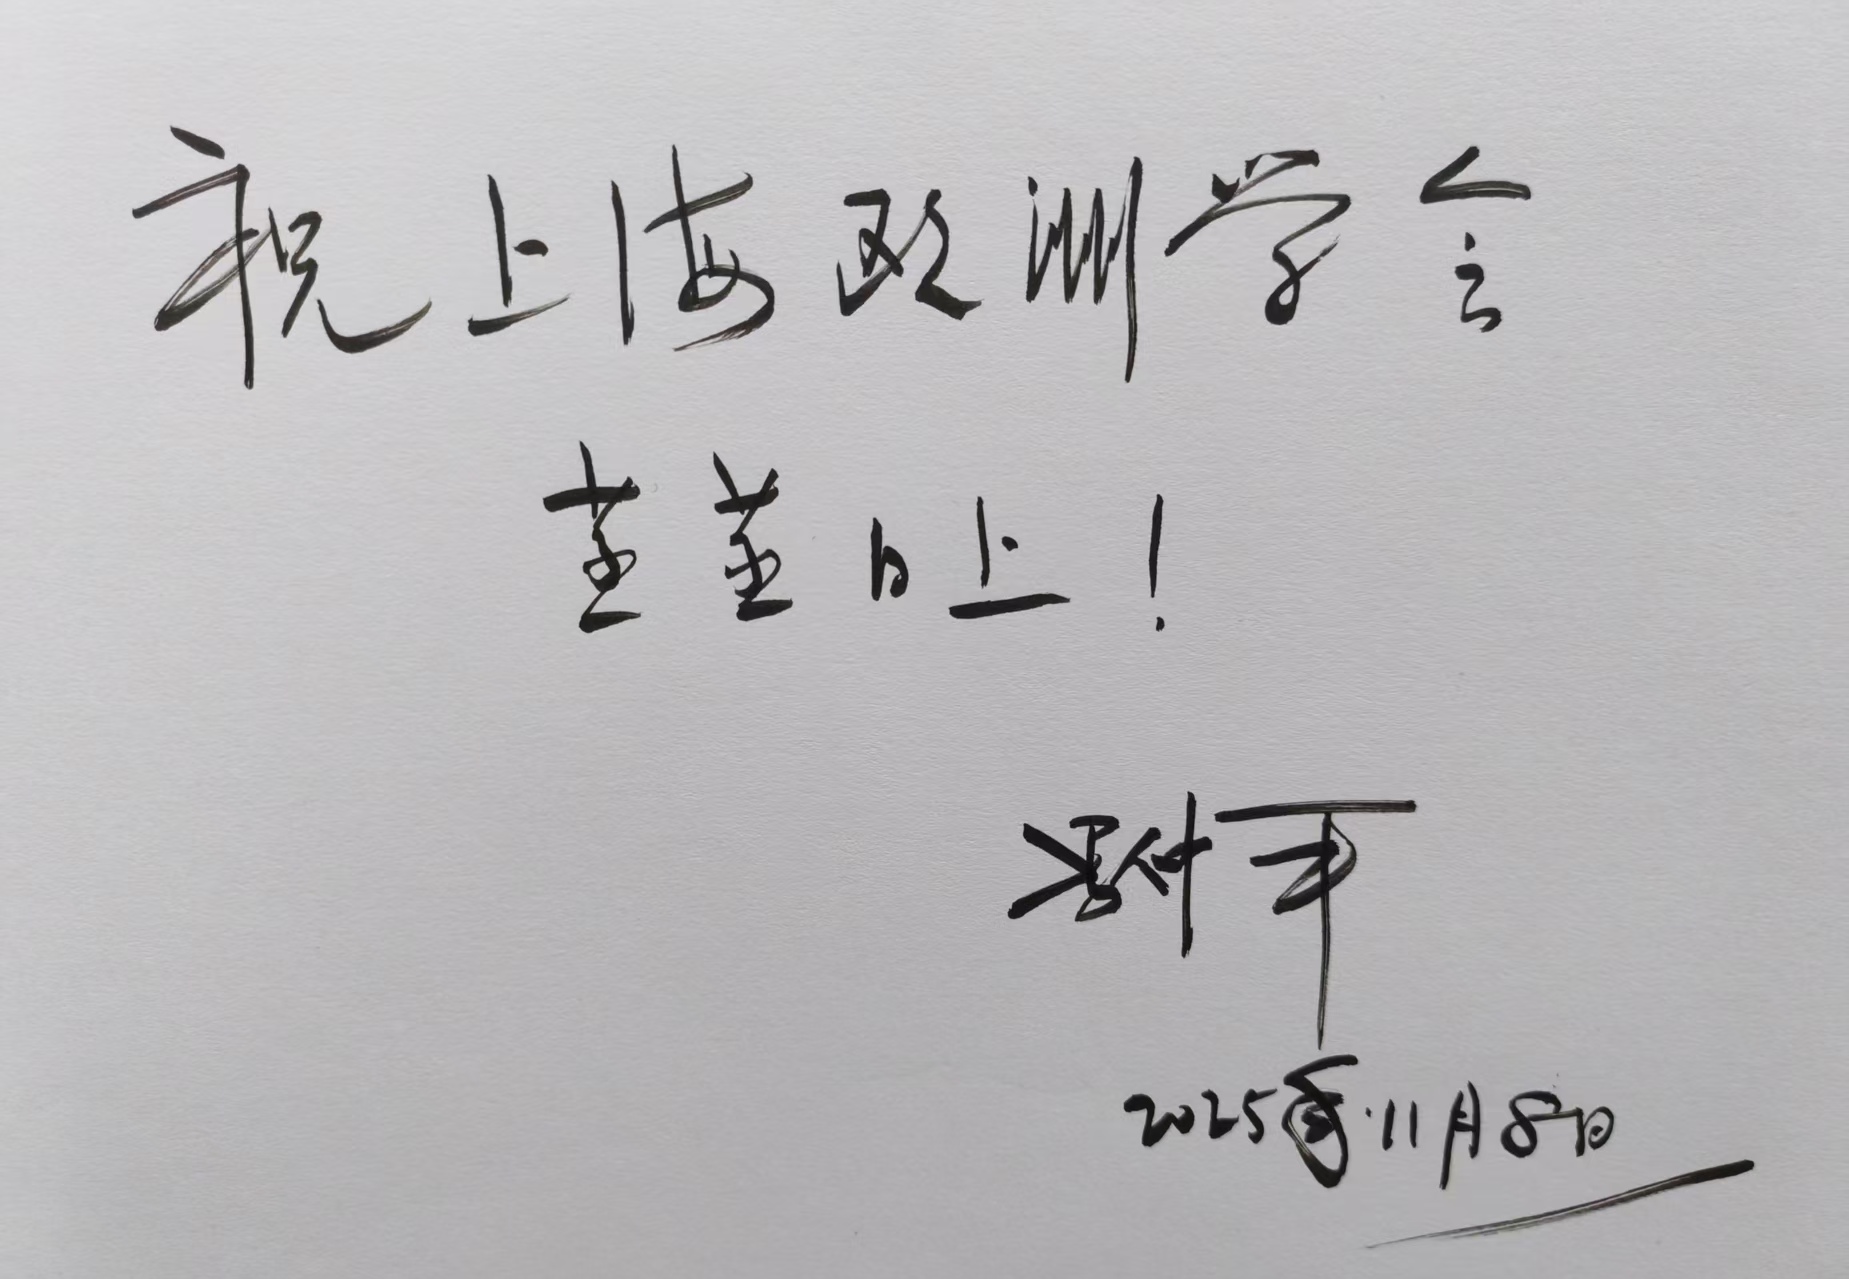 祝上海欧洲学会
蒸蒸日上!
冯仲平
2025年11月8日